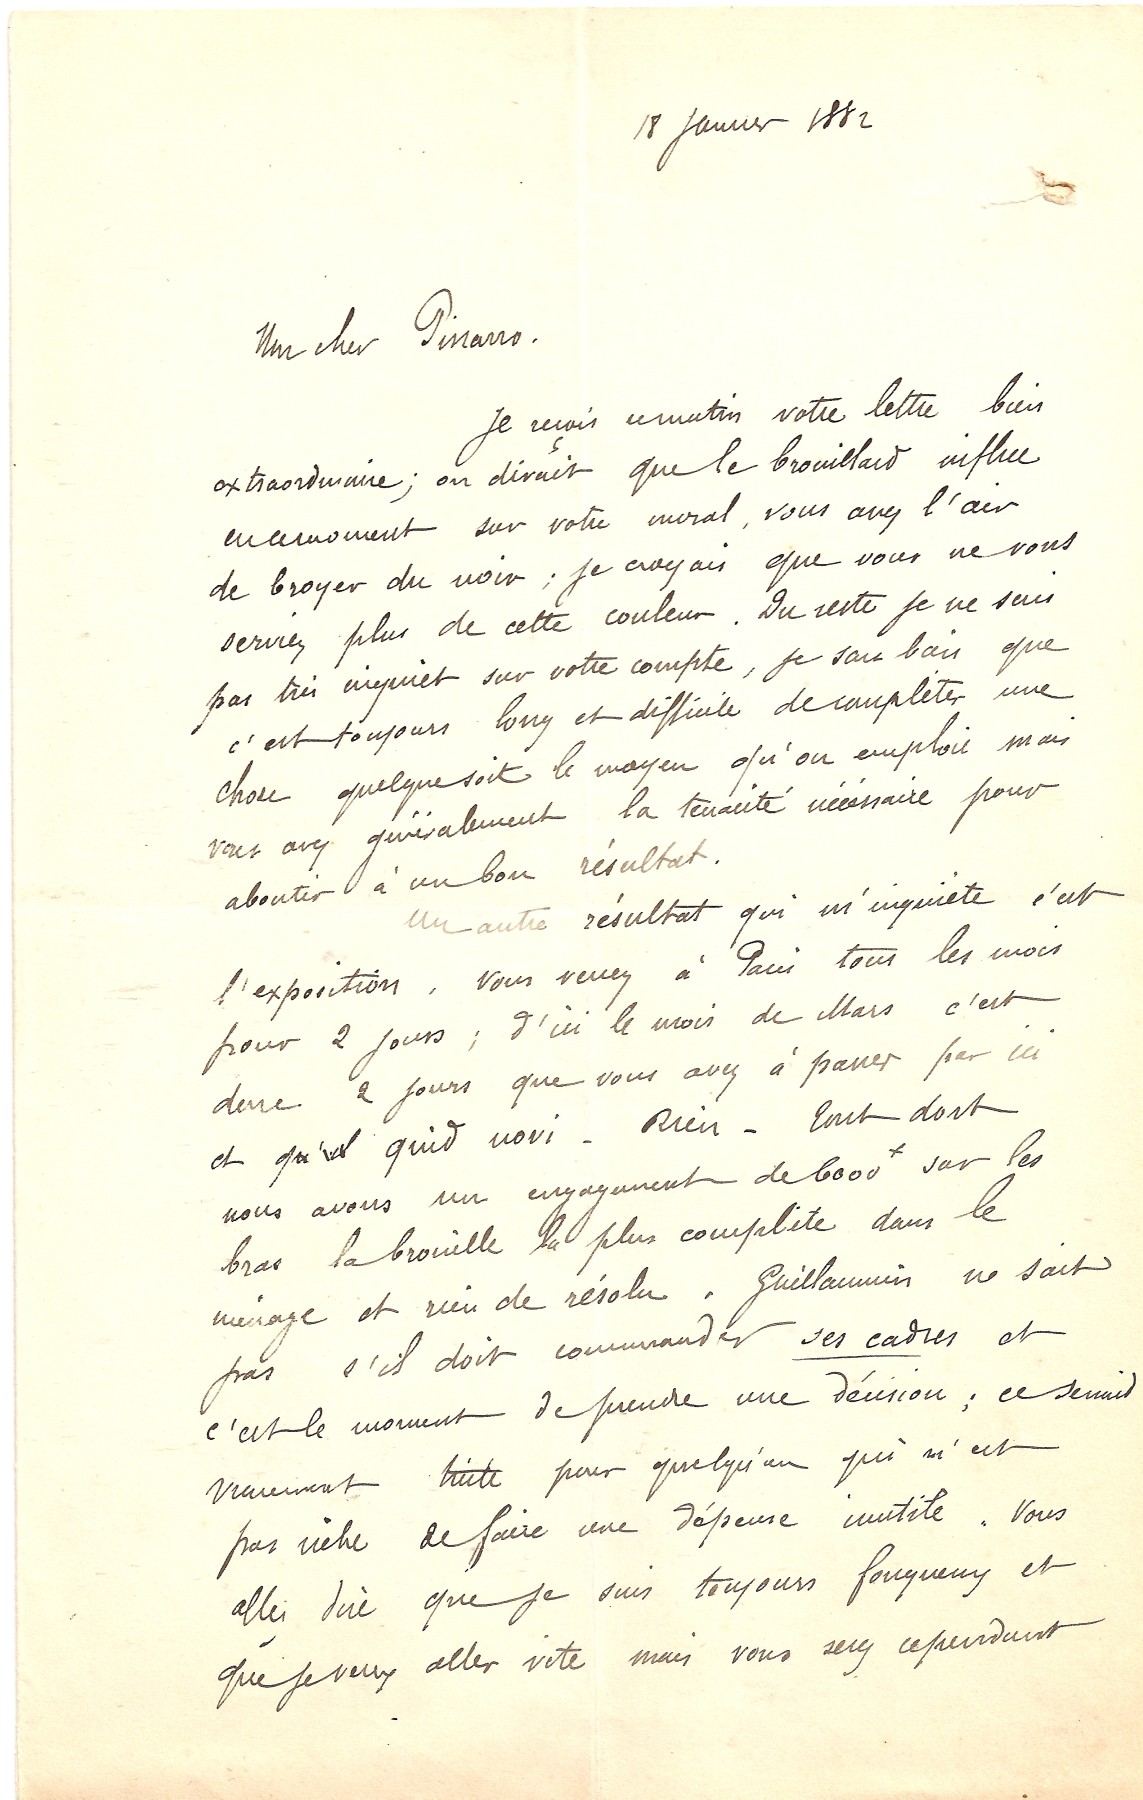 18 Janvier 1882
Mon cher Pissarro.
Je reçois ce matin votre lettre bien
extraordinaire ; on dirait que le brouillard influe
en ce moment sur votre moral, vous avez l'air
de broyer du noir ; je croyais que vous ne vous
serviez plus de cette couleur. Du reste je ne suis
pas très inquiet sur votre compte, je sais bien que
c'est toujours long et difficile de compléter une
chose quelque soit le moyen qu'on emploie mais
vous avez généralement la tenacité nécessaire pour
aboutir à un bon résultat.
Un autre résultat qui m'inquiète c'est
l'exposition. Vous venez à Paris tous les mois
pour 2 jours ; d'ici le mois de Mars c'est
donc 2 jours que vous avez à passer par ici
et quid novi - Rien - Tout dort
nous avons un engagement de 6000 f sur les
bras la brouille la plus complète dans le
ménage et rien de résolu. Guillaumin ne sait
pas s'il doit commander ses cadres et
c'est le moment de prendre une décision ; ce serait
vraiment triste pour quelqu'un qui n'est
pas riche de faire une dépense inutile. Vous
allez dire que je suis toujours fougueux et
que je veux aller vite mais vous serez cependant